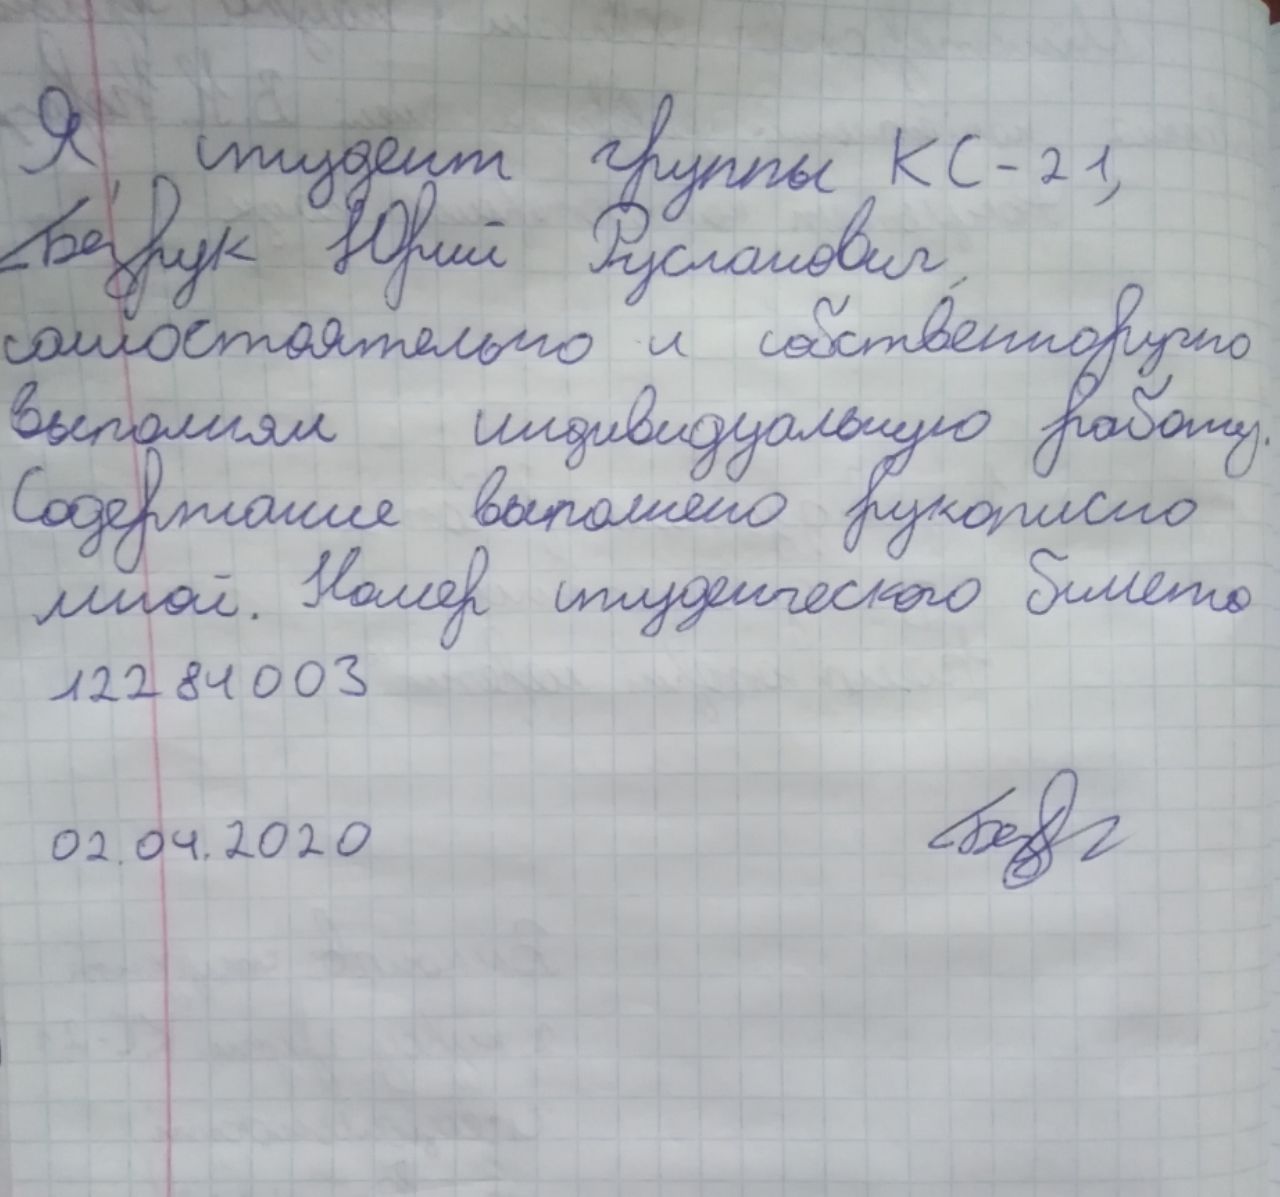 Я студент группы КС-21,
Безрук Юрий Русланович,
самостоятельно и собственноручно
выполнял индивидуальную работу.
Содержание выполнено рукописно
мной. Номер студенческого билета
12281003
02.04.2020